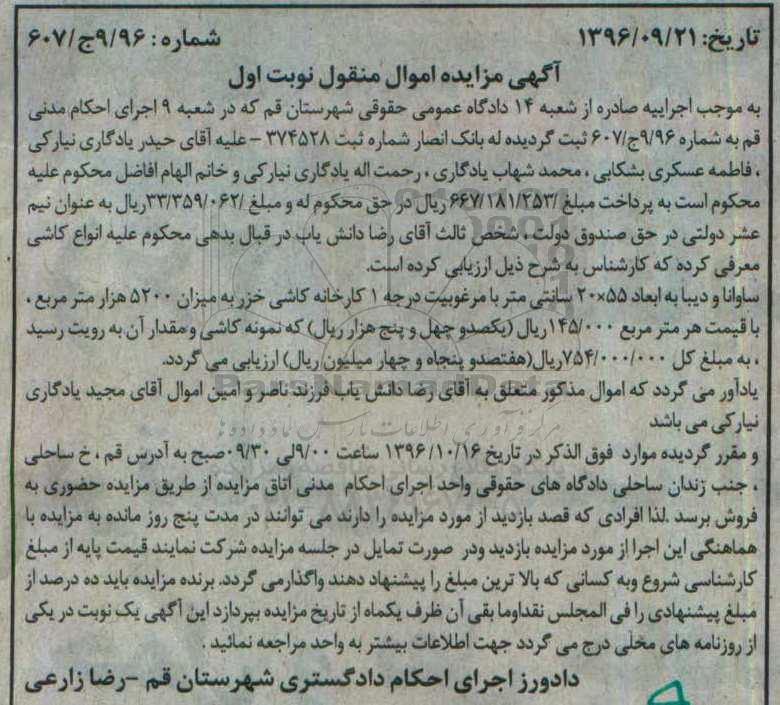 تاریخ: ۱۳۹۶/۰۹/۲۱
شماره: ۹/۹۶ج/۶۰۷
آگهی مزایده اموال منقول نوبت اول
به موجب اجراییه صادره از شعبه ۱۴ دادگاه عمومی حقوقی شهرستان قم که در شعبه ۹ اجرای احکام مدنی
قم به شماره ۹/۹۶ج/۶۰۷ ثبت گردیده له بانک انصار شماره ثبت ۳۷۴۵۲۸ - علیه آقای حیدر یادگاری نیارکی
، فاطمه عسکری بشکابی ، محمد شهاب یادگاری ، رحمت اله یادگاری نیارکی و خانم الهام افاضل محکوم علیه
محکوم است به پرداخت مبلغ /۶۶۷/۱۸۱/۲۵۳ ریال در حق محکوم له و مبلغ /۳۳/۳۵۹/۰۶۲ریال به عنوان نیم
عشر دولتی در حق صندوق دولت ، شخص ثالث آقای رضا دانش یاب در قبال بدهی محکوم علیه انواع کاشی
معرفی کرده که کارشناس به شرح ذیل ارزیابی کرده است.
ساوانا و دیبا به ابعاد ۵۵×۲۰ سانتی متر با مرغوبیت درجه ۱ کارخانه کاشی خزر به میزان ۵۲۰۰ هزار متر مربع ،
با قیمت هر متر مربع ۱۴۵/۰۰۰ریال (یکصدو چهل و پنج هزار ریال) که نمونه کاشی و مقدار آن به رویت رسید
، به مبلغ کل ۷۵۴/۰۰۰/۰۰۰ریال(هفتصدو پنجاه و چهار میلیون ریال) ارزیابی می گردد.
یادآور می گردد که اموال مذکور متعلق به آقای رضا دانش یاب فرزند ناصر و امین اموال آقای مجید یادگاری
نیارکی می باشد
و مقرر گردیده موارد فوق الذکر در تاریخ ۱۳۹۶/۱۰/۱۶ ساعت ۹/۰۰لی ۰۹/۳۰صبح به آدرس قم ، خ ساحلی
، جنب زندان ساحلی دادگاه های حقوقی واحد اجرای احکام مدنی اتاق مزایده از طریق مزایده حضوری به
فروش برسد .لذا افرادی که قصد بازدید از مورد مزایده را دارند می توانند در مدت پنج روز مانده به مزایده با
هماهنگی این اجرا از مورد مزایده بازدید ودر صورت تمایل در جلسه مزایده شرکت نمایند قیمت پایه از مبلغ
کارشناسی شروع وبه کسانی که بالا ترین مبلغ را پیشنهاد دهند واگذارمی گردد. برنده مزایده باید ده درصد از
مبلغ پیشنهادی را فی المجلس نقداوما بقی آن ظرف یکماه از تاریخ مزایده بپردازد این آگهی یک نوبت در یکی
از روزنامه های محلی درج می گردد جهت اطلاعات بیشتر به واحد مراجعه نمائید .
دادورز اجرای احکام دادگستری شهرستان قم -رضا زارعی
ParsNamadData